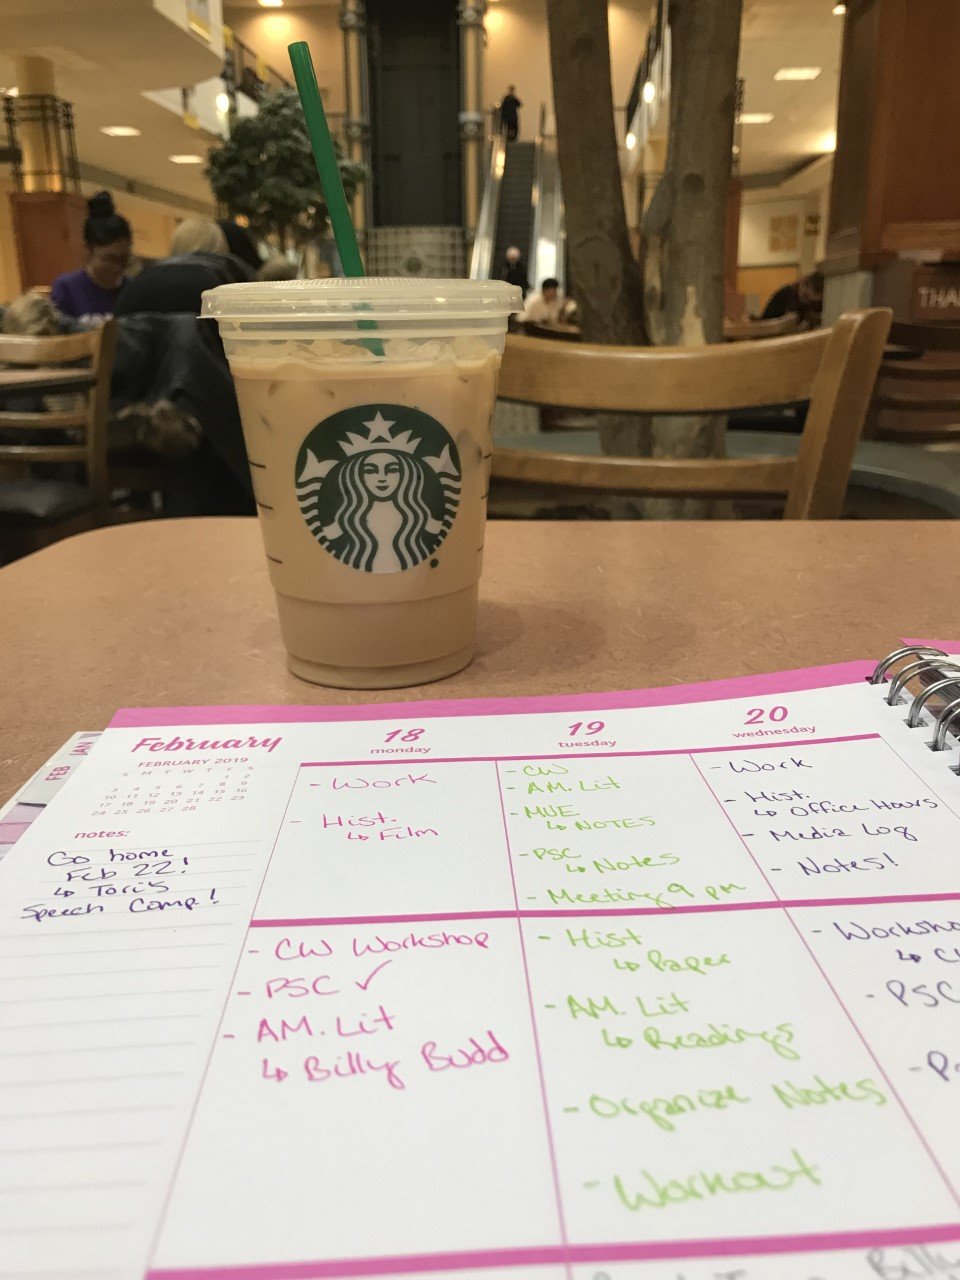 THA
FEB JAN
February
FEBRUARY 2019
S M T W T F S
1 2
3 4 5 6 7 8 9
10 11 12 13 14 15 16
17 18 19 20 21 22 23
24 25 26 27 28
notes:
Go home
Feb 22!
↳ Tori's
Speech Comp!
18
monday
- Work
- Hist.
↳ Film
- CW Workshop
- PSC ✓
- AM. Lit
↳ Billy Budd
19
tuesday
- CW
- AM. Lit
- MUE
↳ NOTES
- PSC
↳ Notes
- Meeting 9 pm
- Hist
↳ Paper
- AM. Lit
↳ Readings
- Organize Notes
- Workout
20
wednesday
- Work
- Hist.
↳ Office Hours
- Media Log
- Notes!
- Worksho
↳ C
- PSC
- P